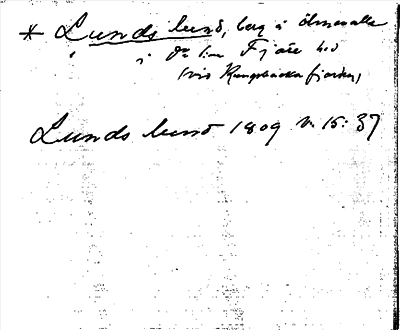 * Lunds lund, berg i Ölmevalla
i ds sn Fjäre hd
(vid Kungsbacka fjorden)
Lunds lund 1809 V 15:37